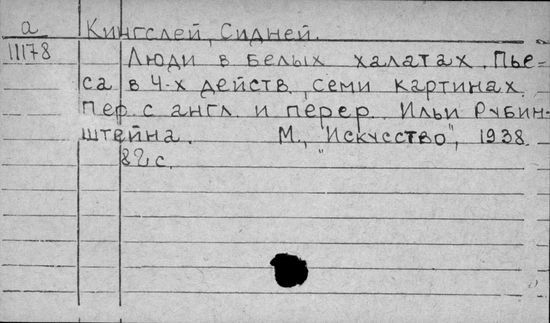 а
Кингслей, Сидней.
11178
Люди в белых халатах. Пье-
са в 4-х действ., семи картинах.
Пер. с англ. и перер. Ильи Рубин-
штейна. М., "Искусство", 1938.
82 с.